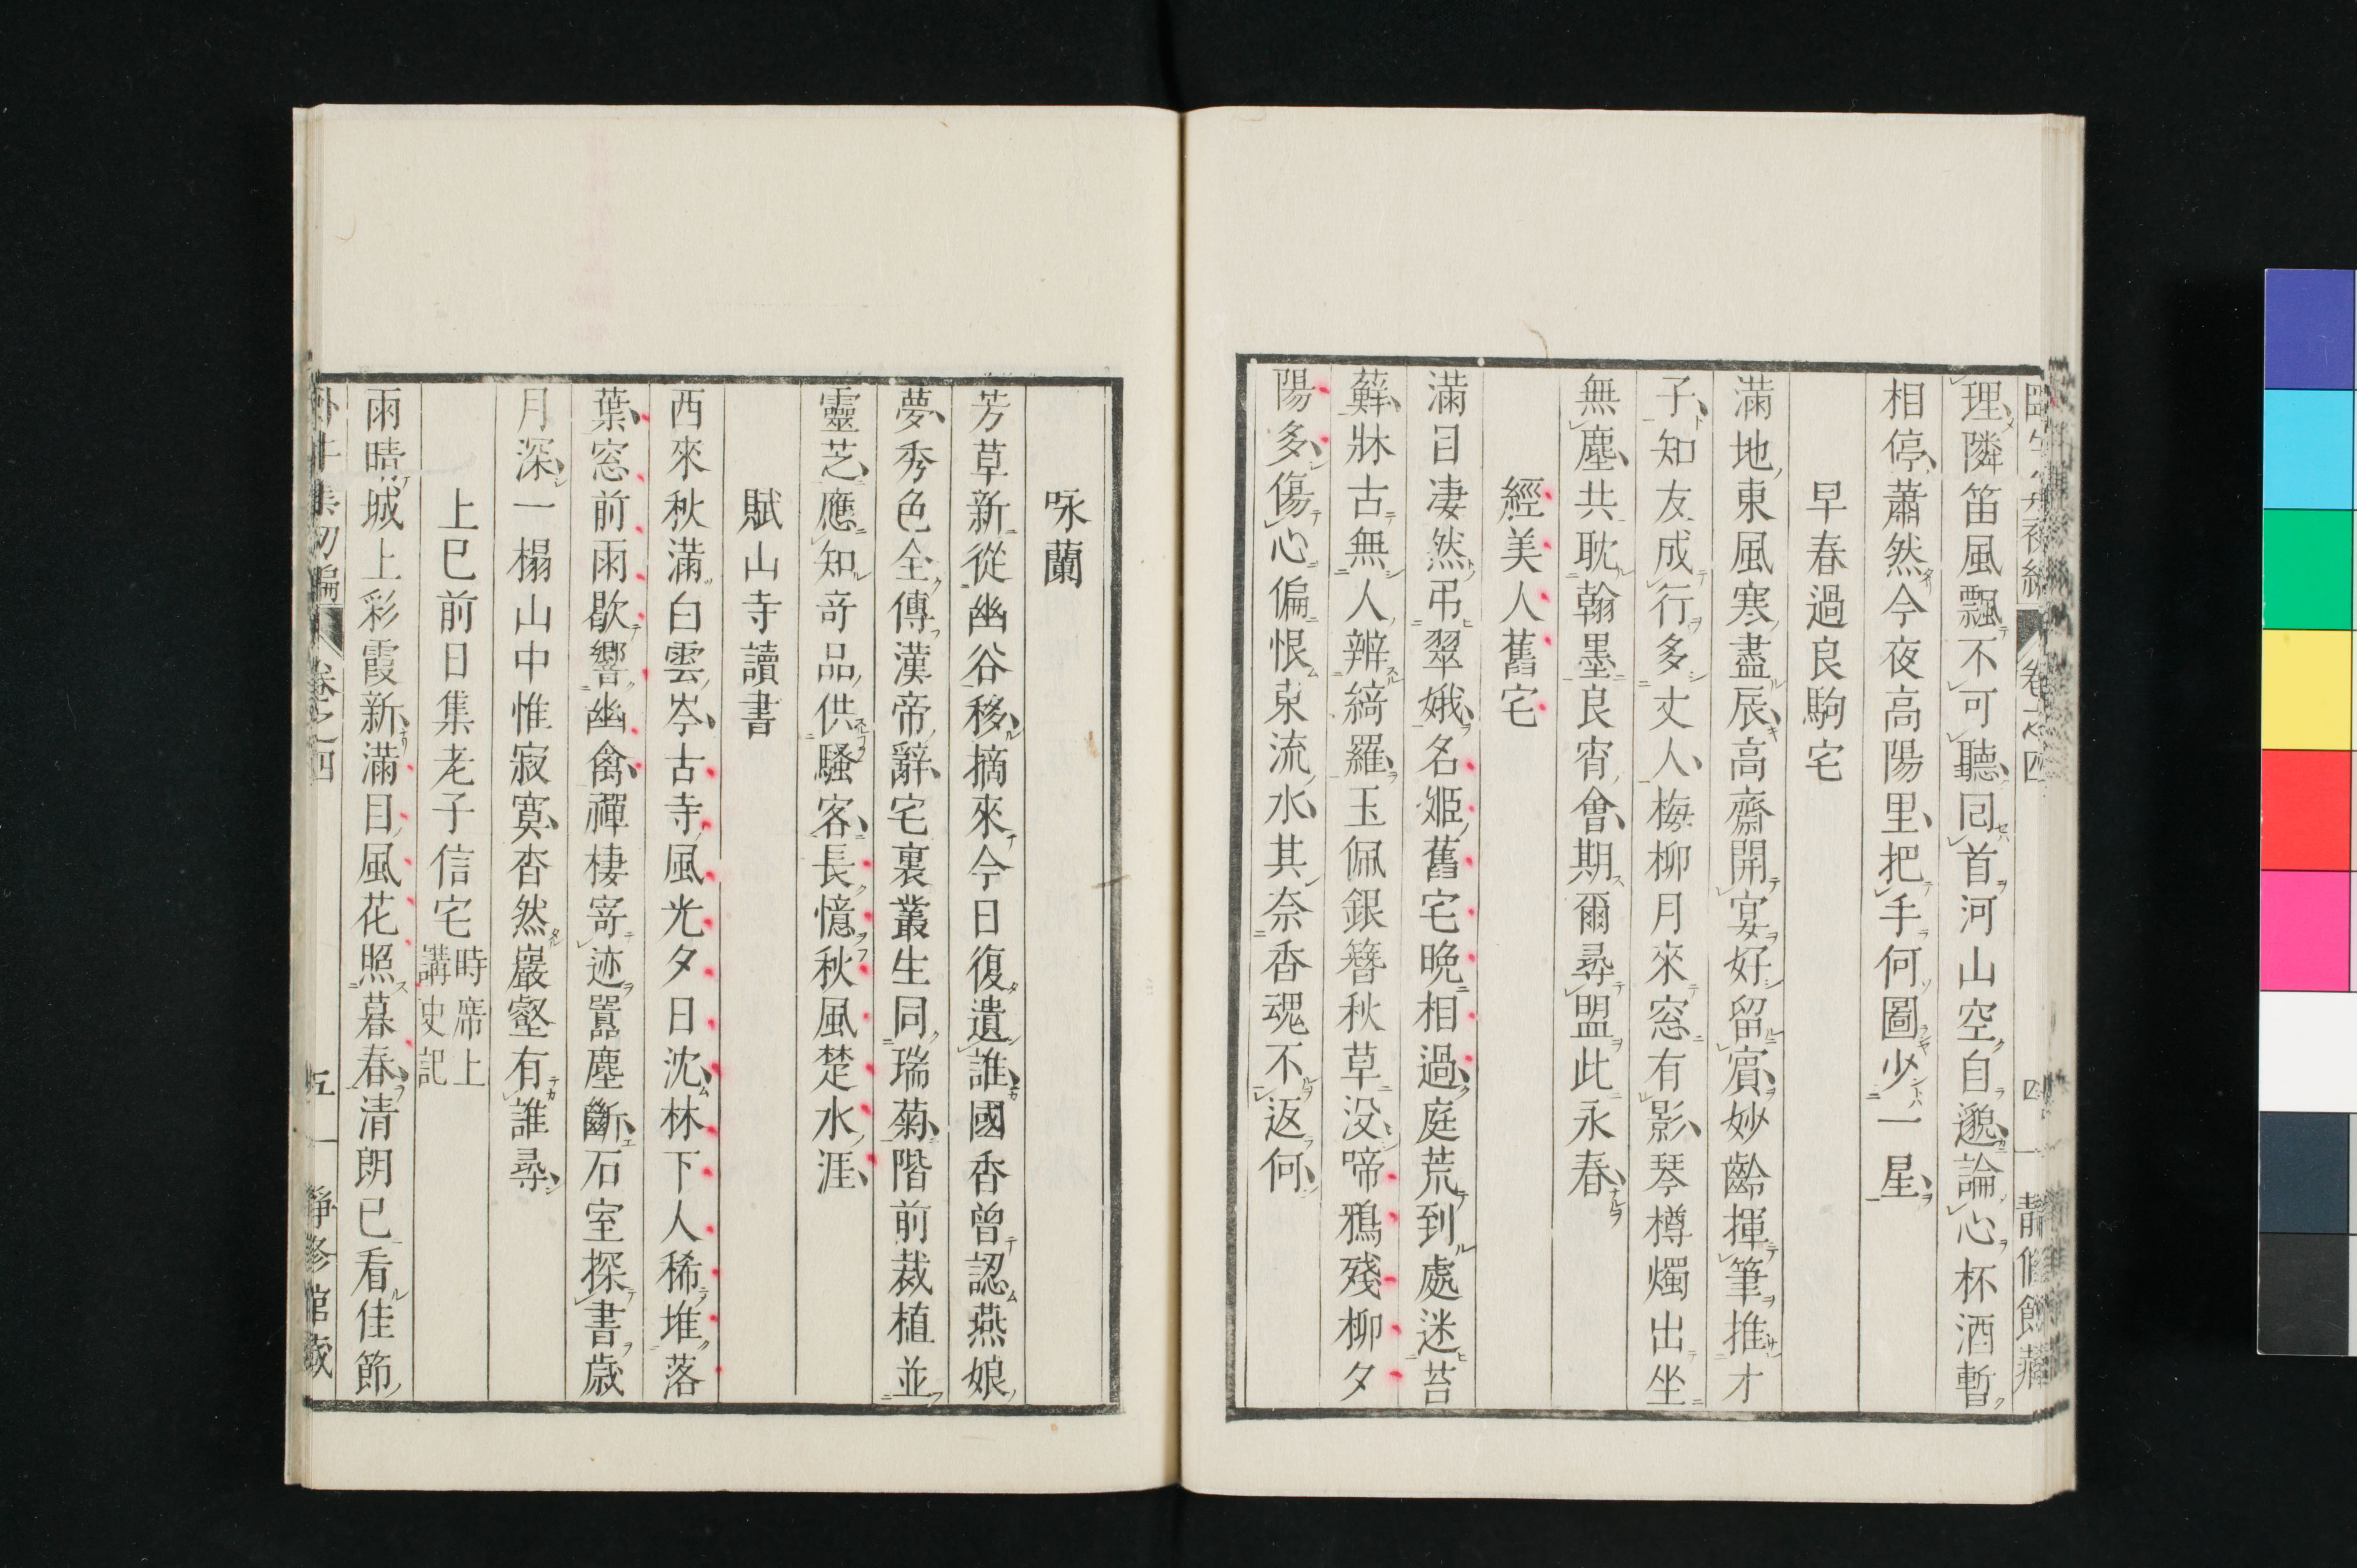 理隣笛風飄不可聽回首河山空自邈論心杯酒暫
相停蕭然今夜高陽里把手何圖少一星
早春過良駒宅
滿地東風寒盡辰高齋開宴好留賓妙齡揮筆推才
子知友成行多丈人梅柳月來窓有影琴樽燭出坐
無塵共耽翰墨良宵會期爾尋盟此永春
經美人舊宅
滿目凄然弔翠娥名姬舊宅晩相過庭荒到處迷苔
蘚牀古無人辨綺羅玉佩銀簪秋草没啼鴉殘柳夕
陽多傷心偏恨東流水其奈香魂不返何
咏蘭
芳草新從幽谷移摘來今日復遺誰國香曾認燕娘
夢秀色全傳漢帝辭宅裏叢生同瑞菊階前裁植並
靈芝應知奇品供騷客長憶秋風楚水涯
賦山寺讀書
西來秋滿白雲岑古寺風光夕日沈林下人稀堆落
葉窓前雨歇響幽禽禪棲寄迹囂塵斷石室探書歳
月深一榻山中惟寂寞杳然巖壑有誰尋
上巳前日集老子信宅 時席上講史記
雨晴城上彩霞新滿目風花照暮春清朗已看佳節
卷之四 五 靜修館藏